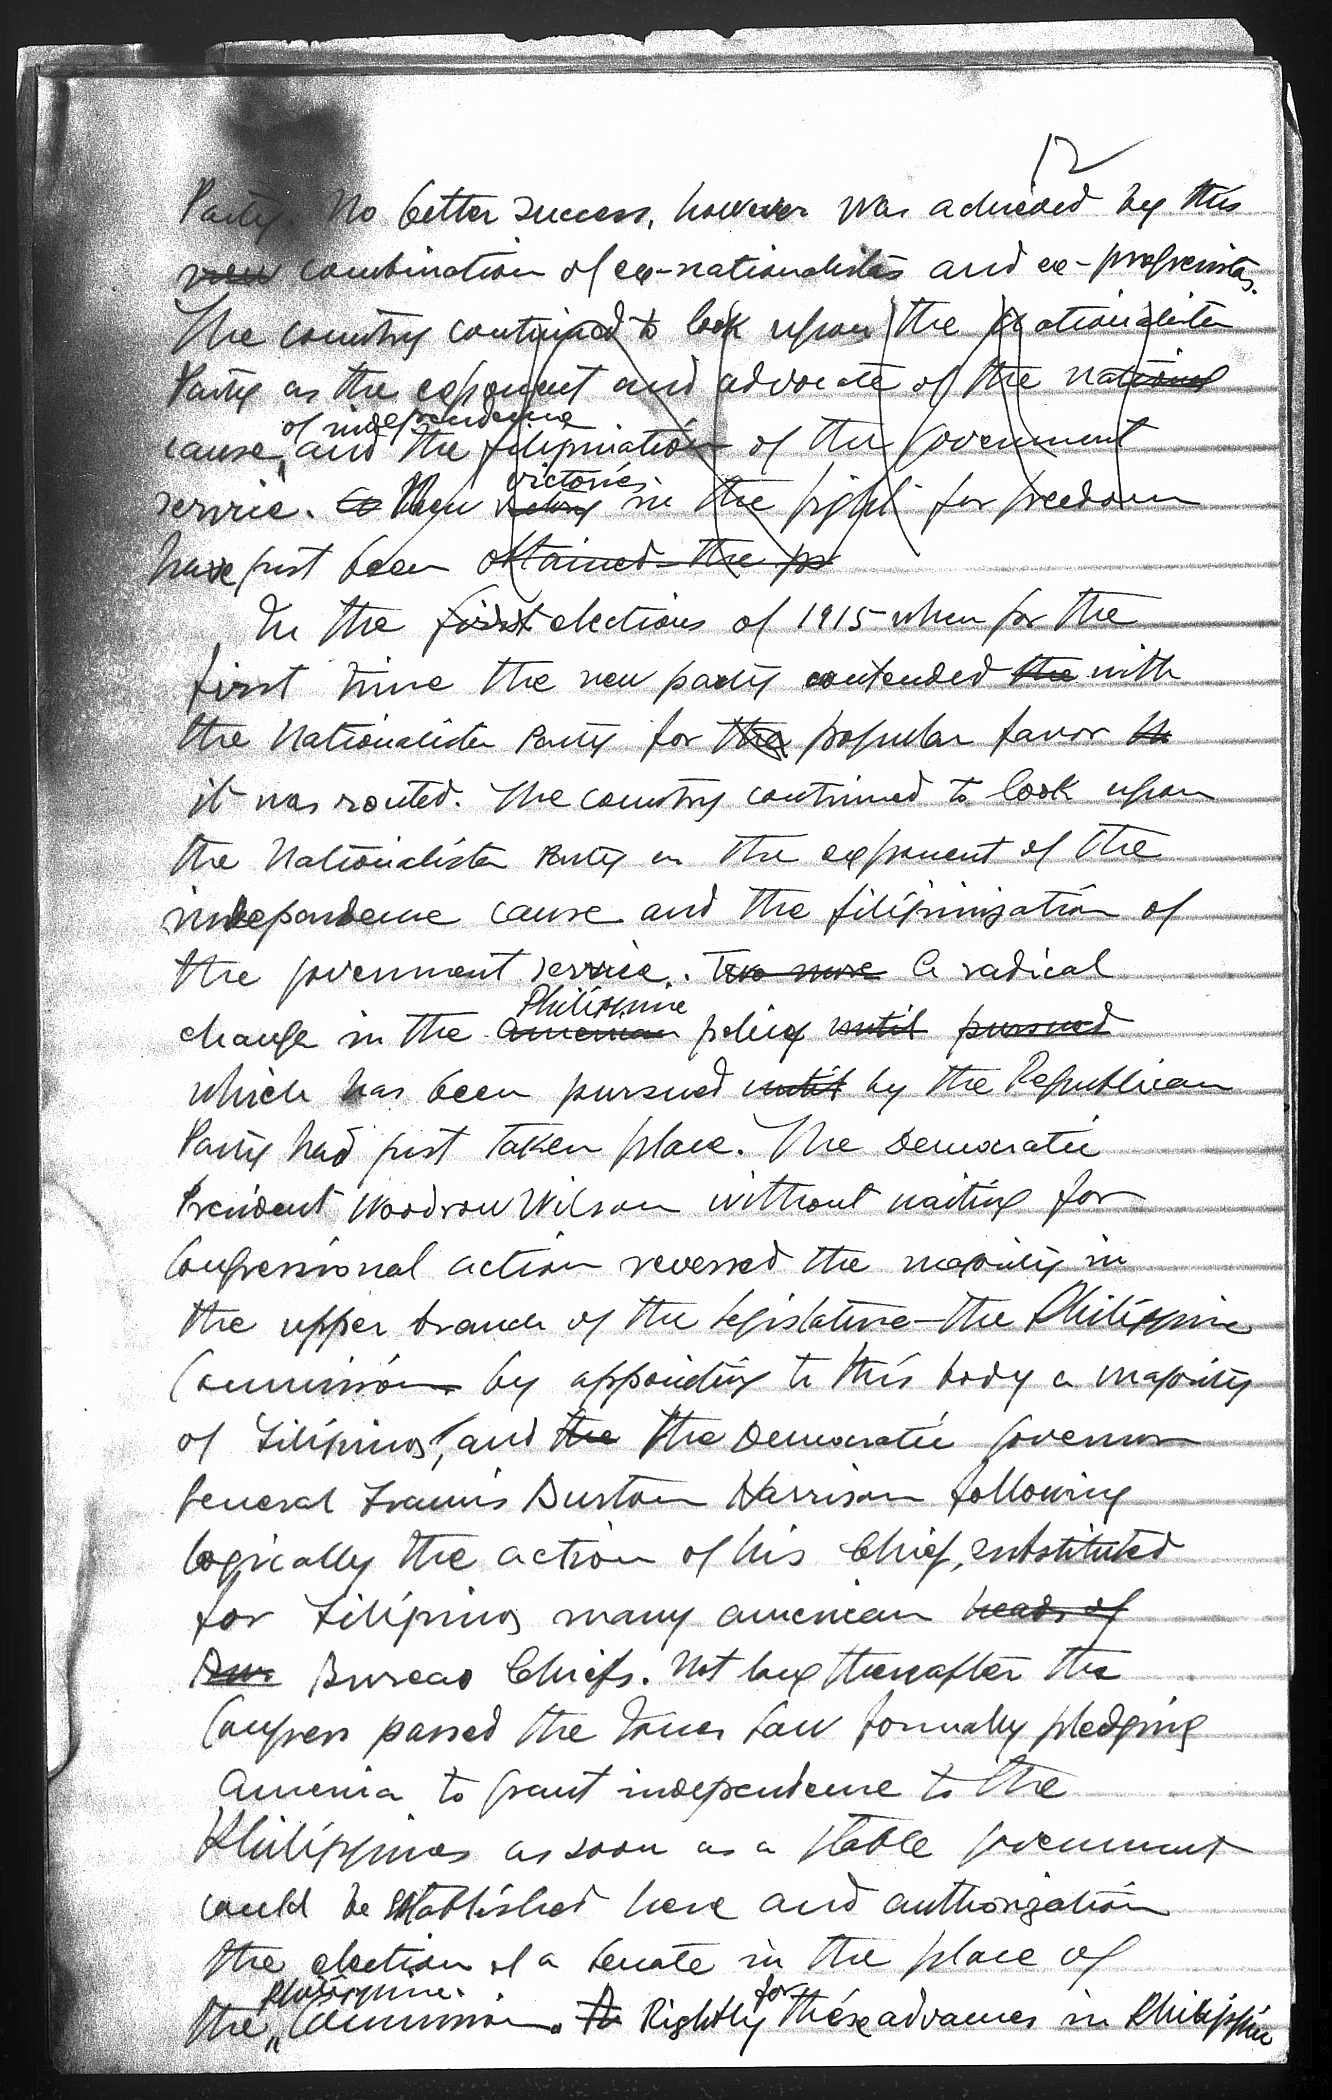 12
Party. No better success, however was achieved by this
new combination of ex-nationalistas and ex-progresistas.
The country continued to look upon the Nationalista
Party as the exponent and advocate of the national
of independence
cause, and the filipinization of the government
victories
service. New victory in the fight for freedom
have just been obtained the
In the first elections of 1915 when for the
first time the new party contended the with
the Nationalista Party for the popular favor
it was routed. The country continued to look upon
the Nationalista Party as the exponent of the
independence cause and the filipinization of
the government service. Two more A radical
Philippine
change in the American policy until pursued
which has been pursued until by the Republican
Party had just taken place. The Democratic
President Woodrow Wilson without waiting for
Congressional action reversed the majority in
the upper branch of the Legislature—the Philippine
Commission by appointing to this body a majority
of Filipinos, and the the Democratic Governor
General Francis Burton Harrison following
logically the action of his Chief, substituted
for Filipinos many American heads of
Bureau Chiefs. Not long thereafter the
Congress passed the Jones Law formally pledging
America to grant independence to the
Philippines as soon as a stable government
could be established here and authorization
the election of a Senate in the place of
Philippine
the Commission. Rightly for these advances in Philippine